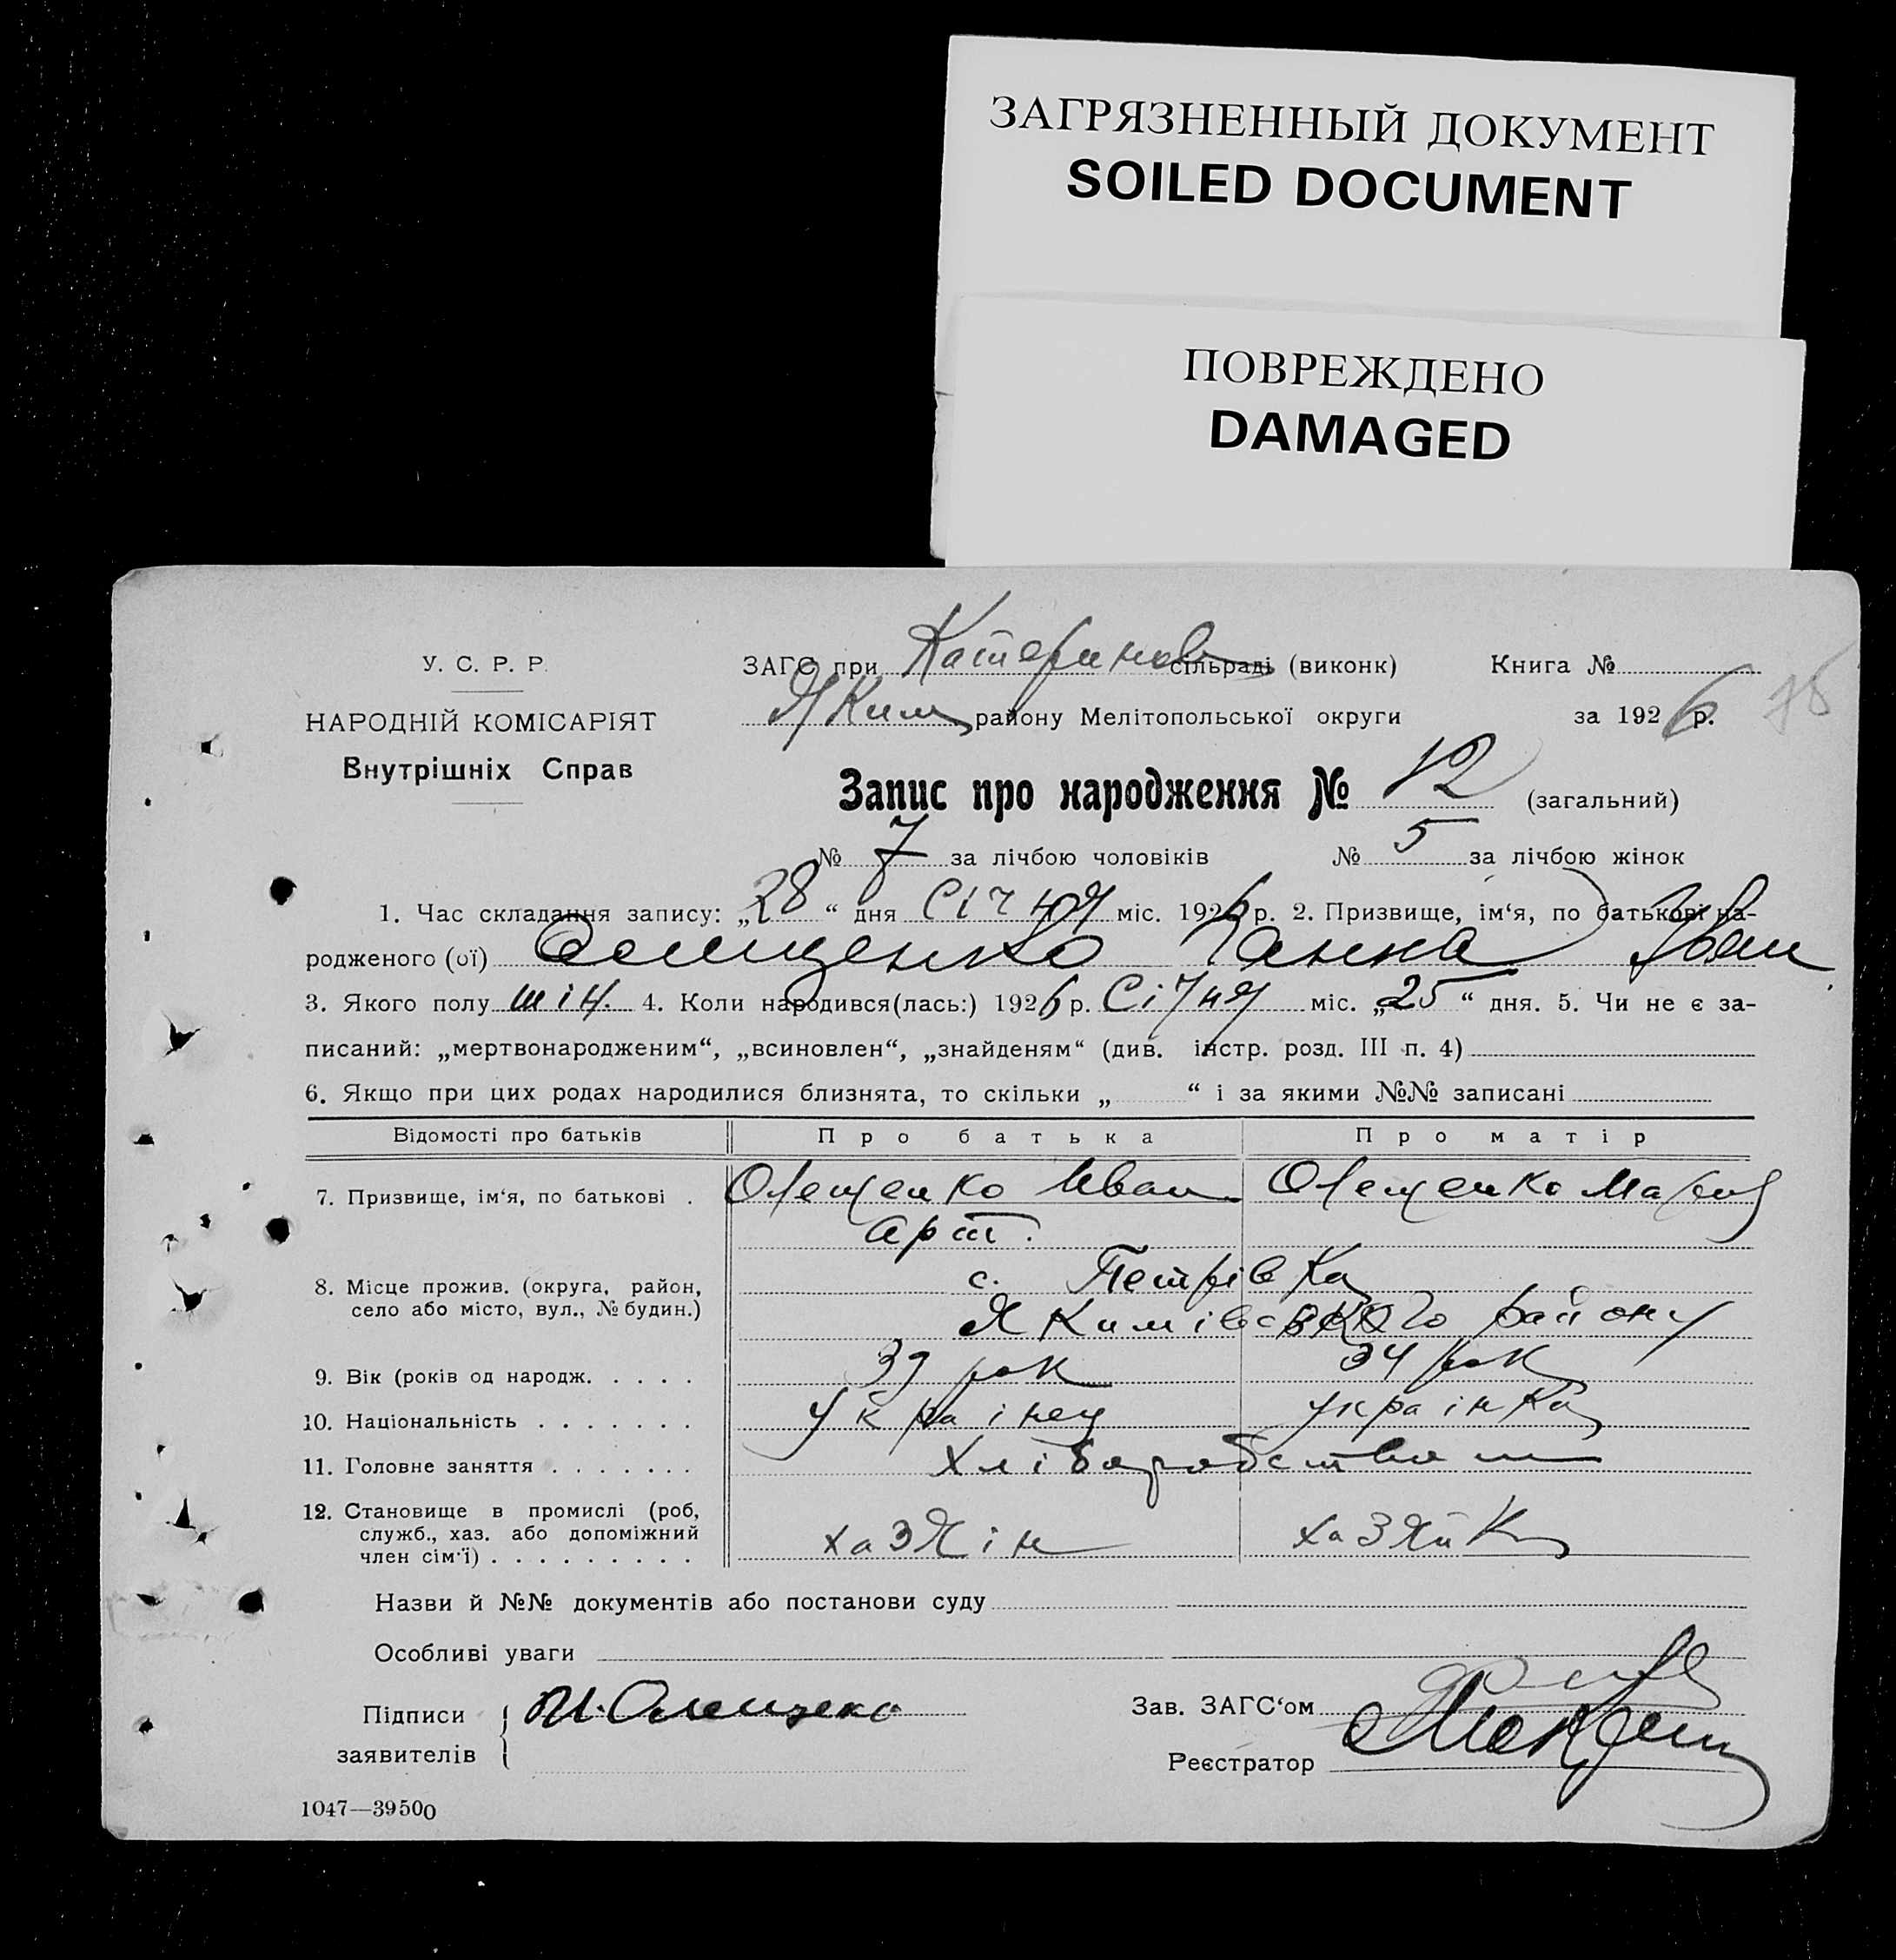 ЗАГРЯЗНЕННЫЙ ДОКУМЕНТ
SOILED DOCUMENT
ПОВРЕЖДЕНО
DAMAGED
У. С. Р. Р.
НАРОДНІЙ КОМІСАРІЯТ
Внутрішніх Справ
ЗАГС при Катеринов сільраді (виконк) Книга №
Яким району Мелітопольської округи за 1926 р.
Запис про народження № 12 (загальний)
№ 7 за лічбою чоловіків № 5 за лічбою жінок
1. Час складання запису: „28“ дня Січня міс. 1926 р. 2. Призвище, ім‘я, по батькові на-
родженого (ої) Олещенко Ганна Іван
3. Якого полу жін. 4. Коли народився(лась:) 1926 р. Січня міс. „25“ дня. 5. Чи не є за-
писаний: „мертвонародженим“, „всиновлен“, „знайденям“ (див. інстр. розд. III п. 4)
6. Якщо при цих родах народилися близнята, то скільки „ “ і за якими №№ записані
Відомості про батьків Про батька Про матір
7. Призвище, ім‘я, по батькові . Олещенко Иван Олещенко Мария
Арт.
8. Місце прожив. (округа, район, с. Петрівка
село або місто, вул., № будин.) Якимівського району
9. Вік (років од народж. . . . . 39 рок 34 рок
10. Національність . . . . . . . Українец Українка
11. Головне заняття . . . . . . . Хліборобством
12. Становище в промислі (роб,
служб., хаз. або допоміжний
член сім‘ї) . . . . . . . . . хазяін хазяйка
Назви й №№ документів або постанови суду
Особливі уваги
Підписи И. Олещеко
заявителів
Зав. ЗАГС‘ом
Реєстратор
1047—39500